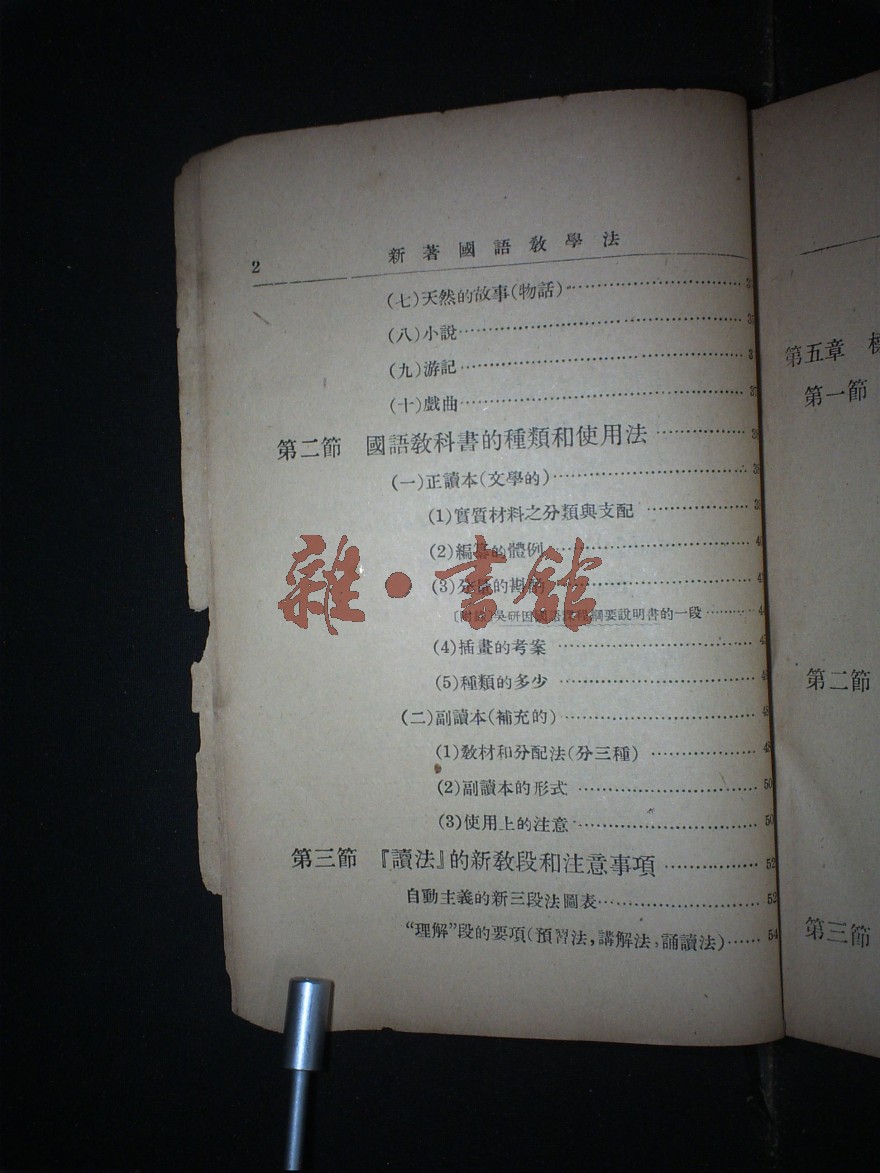 2 新著國語教學法
(七)天然的故事(物話)
(八)小說
(九)游記
(十)戲曲
第二節 國語教科書的種類和使用法
(一)正讀本(文學的)
(1)實質材料之分類與支配
(2)編 的體例
(3) 的
吳研因國語課程綱要說明書的一段
(4)插畫的考案
(5)種類的多少
(二)副讀本(補充的)
(1)教材和分配法(分三種)
(2)副讀本的形式 50
(3)使用上的注意 50
第三節 『讀法』的新教段和注意事項 52
自動主義的新三段法圖表 52
“理解”段的要項(預習法,講解法,誦讀法) 54
第五章
第一節
第二節
第三節
雜·書館